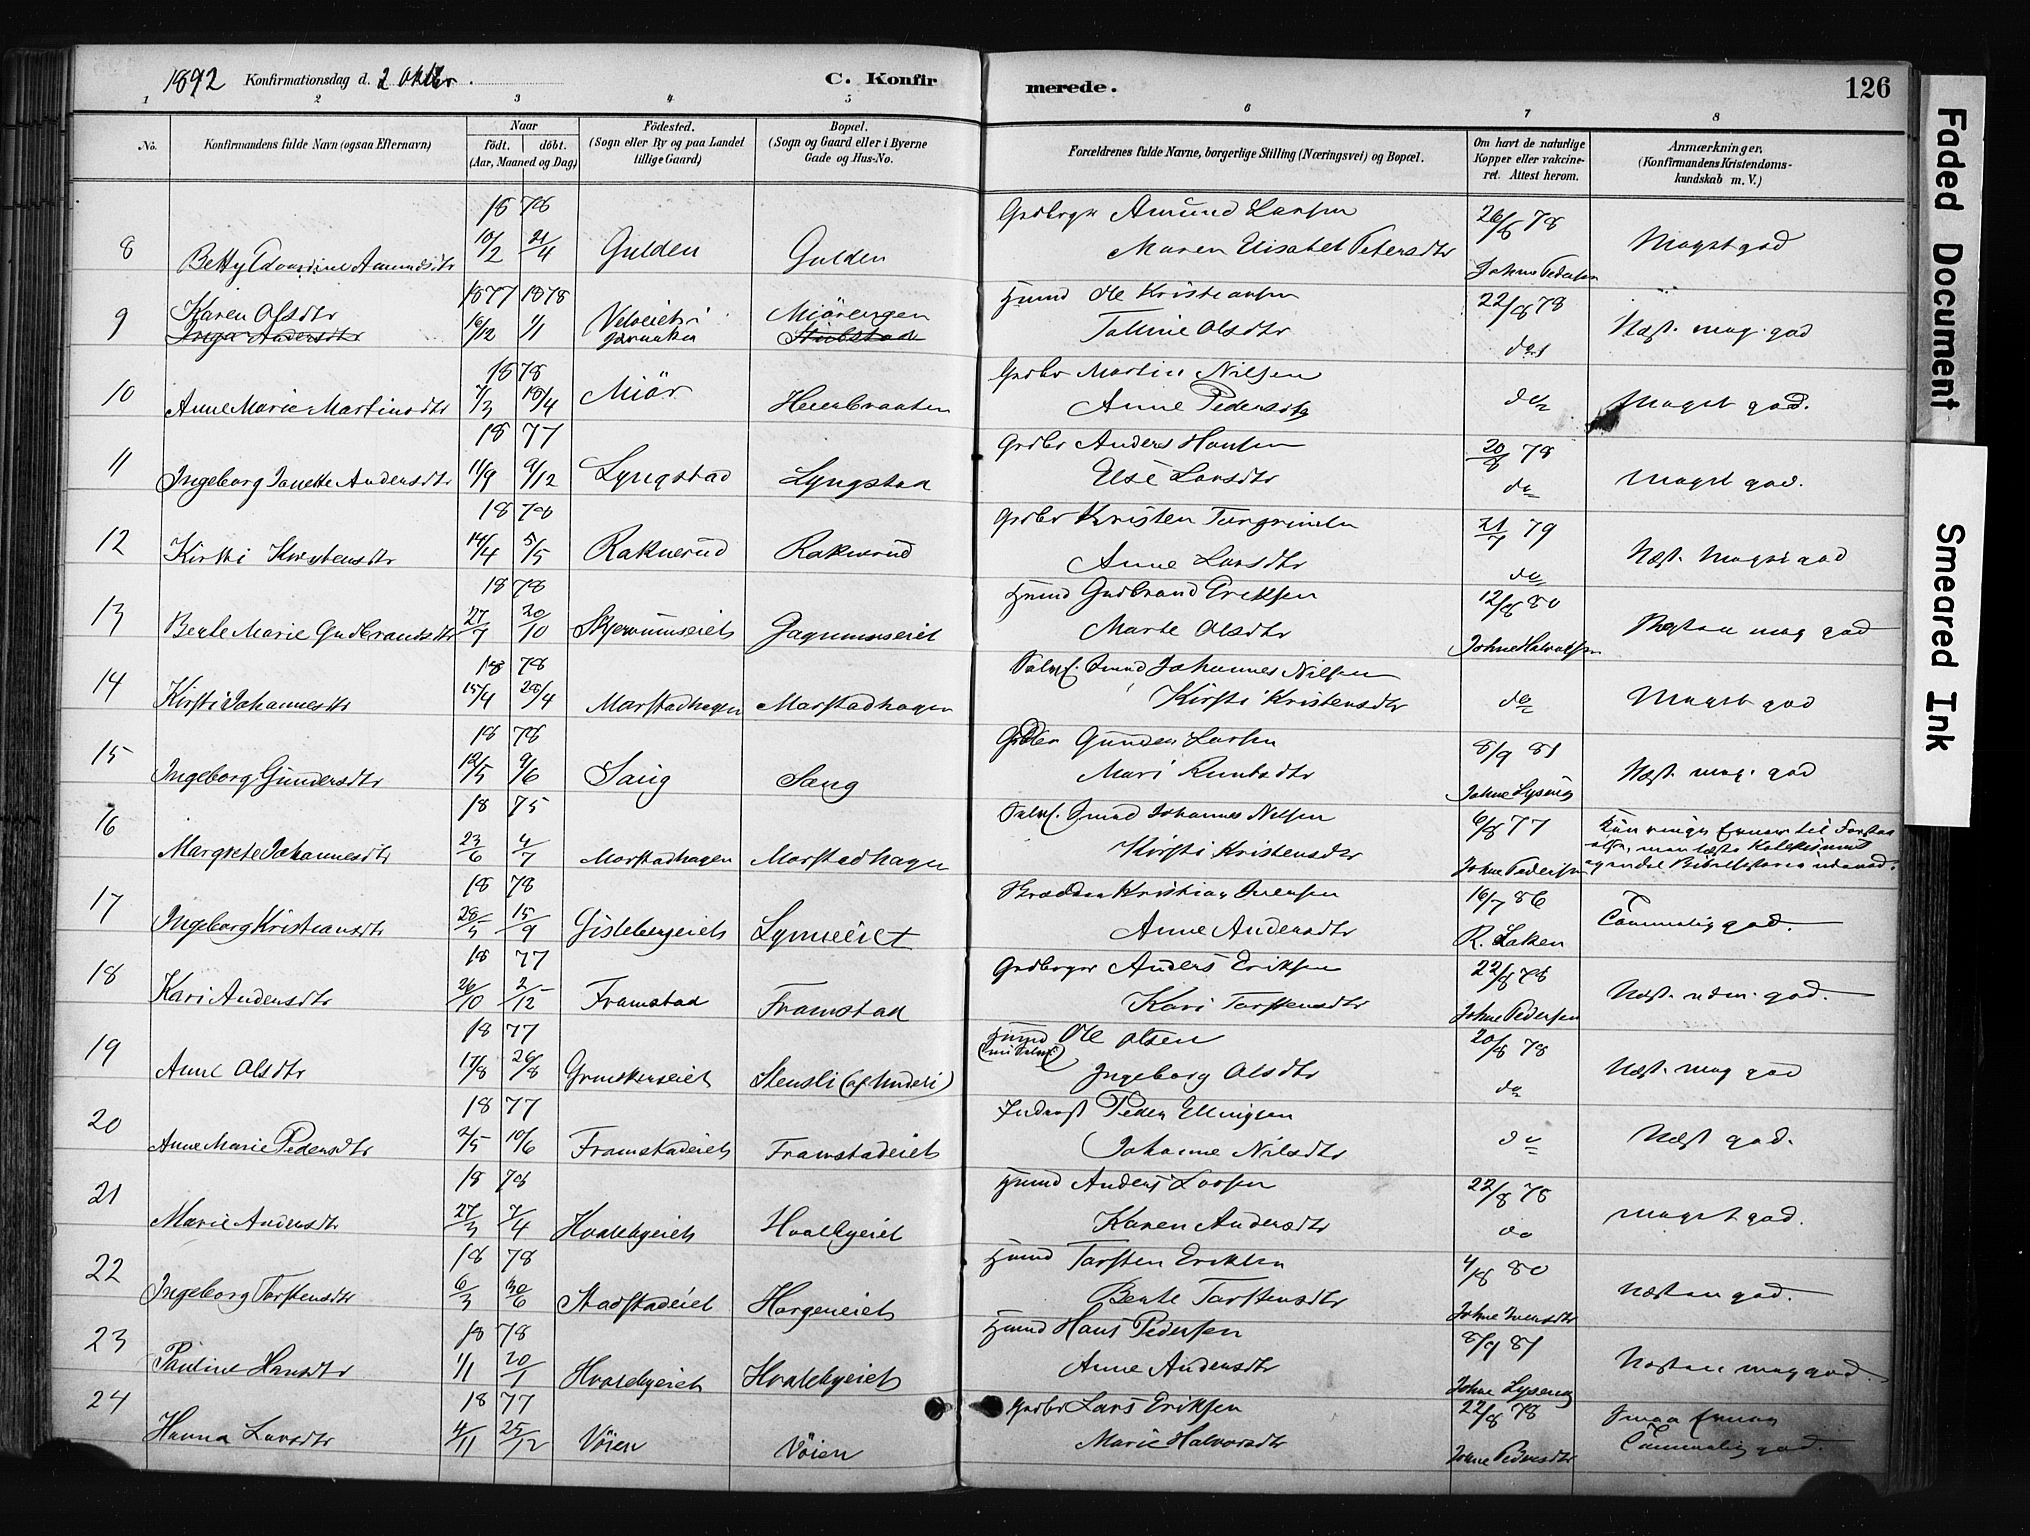 1892 Konfirmationsdag d. 2 Oktbr. C. Konfirmerede. 126
1 2 3 4 5 6 7 8
No. Konfirmandens fulde Navn (ogsaa Efternavn) Naar födt. döbt. (Aar, Maaned og Dag) Födested. (Sogn eller By og paa Landet tillige Gaard) Bopæl. (Sogn og Gaard eller i Byerne Gade og Hus-No. Forældrenes fulde Navne, borgerlige Stilling (Næringsvei) og Bopæl. Om havt de naturlige Kopper eller vakcineret. Attest herom. Anmærkninger. (Konfirmandens Kristendomskundskab m. V.)
18 78 Gaardbrgr Amund Larsen 26/8 78
8 Betty Edvardine Amundsdtr 10/2 21/4 Gulden Gulden Maren Elisabet Petersdtr Johne Pedersen Meget god
1877 1878 Husmd Ole Kristiansen 22/8 78
9 Karen Olsdtr 16/12 1/1 Miörengen Næst. meg. god
Inga Andersdtr Olsdtr do
18 78 Grdbr Martin Nilsen
10 Anne Marie Martinsdtr 7/3 10/4 Miör Heienbraaten Anne Pedersdtr do Meget god.
18 77 Grdbr Anders Hansen 20/8 78
11 Ingeborg Janette Andersdtr 11/9 9/12 Lyngstad Lyngstad Else Larsdtr do Meget god.
18 78 Grdbr Kristen 21/7 79
12 Kirsti Kristensdtr 14/4 5/5 Raknerud Raknerud Anne Larsdtr do Næst. Meget god
18 78 Husmd Gudbrand Eriksen 12/8 80
13 Bente Marie Gudbrandsdtr 27/7 20/10 Marte Olsdtr Johne Halvorsen Næsten meg god
18 78 Husmd Johannes Nilsen
14 Kirsti Johannesdtr 15/4 28/4 Morstadhagen Morstadhagen Kirsti Kristensdtr do Meget god
18 78 Gunder Larsen 8/9 81
15 Ingeborg Gundersdtr 12/5 9/6 Saug Saug Mari Knutsdtr Johne Lyseng Næst. meg. god
18 75 Husmd Johannes Nilsen 6/8 77
16 Margrete Johannesdtr 23/6 4/7 Morstadhagen Morstadhagen Kirsti Kristensdtr Johne Pedersen Kun ringe Evner til Forstaaelse, men læste Katekismus
18 78 Skrædder Kristian Iversen 16/7 86
17 Ingeborg Kristiansdtr 28/5 15/9 Gislebergeiet Lynneeiet Anne Andersdtr R. Laken Taamelig god.
18 77 Grdbrger Anders Eriksen 22/8 78
18 Kari Andersdtr 26/10 2/12 Framstad Framstad Kari Torstensdtr Johne Pedersen Næst. uden. god.
18 77 Husmd Ole Olsen 20/8 78
19 Anne Olsdtr 17/8 26/8 Stensli Ingeborg Olsdtr do Næst. meg god
18 77 Inderst Peder Ellingsen
20 Anne Marie Pedersdtr 2/5 10/6 Framstadeiet Framstadeiet Johanne Nilsdtr do Næst god.
18 78 Husmd Anders Larsen 22/8 78
21 Marie Andersdtr 27/3 7/4 Hvalebyeiet Hvalebyeiet Karen Andersdtr do Meget god.
18 78 Husmd Torsten Eriksen 4/8 80
22 Ingeborg Torstensdtr 6/3 30/6 Stadstadeiet Horgeneiet Bente Torstensdtr Næsten god.
18 78 Husmd Hans Pedersen 8/9 81
23 Pauline Hansdtr 1/1 20/1 Hvalebyeiet Hvalebyeiet Anne Andersdtr Johne Lyseng Næsten meg god.
18 77 Grdbr Lars Eriksen 22/8 78 Smaa Evner
24 Hanna Larsdtr 4/11 25/12 Vöien Vöien Marie Halvorsdtr Taamelig god.
Faded Document
Smeared Ink